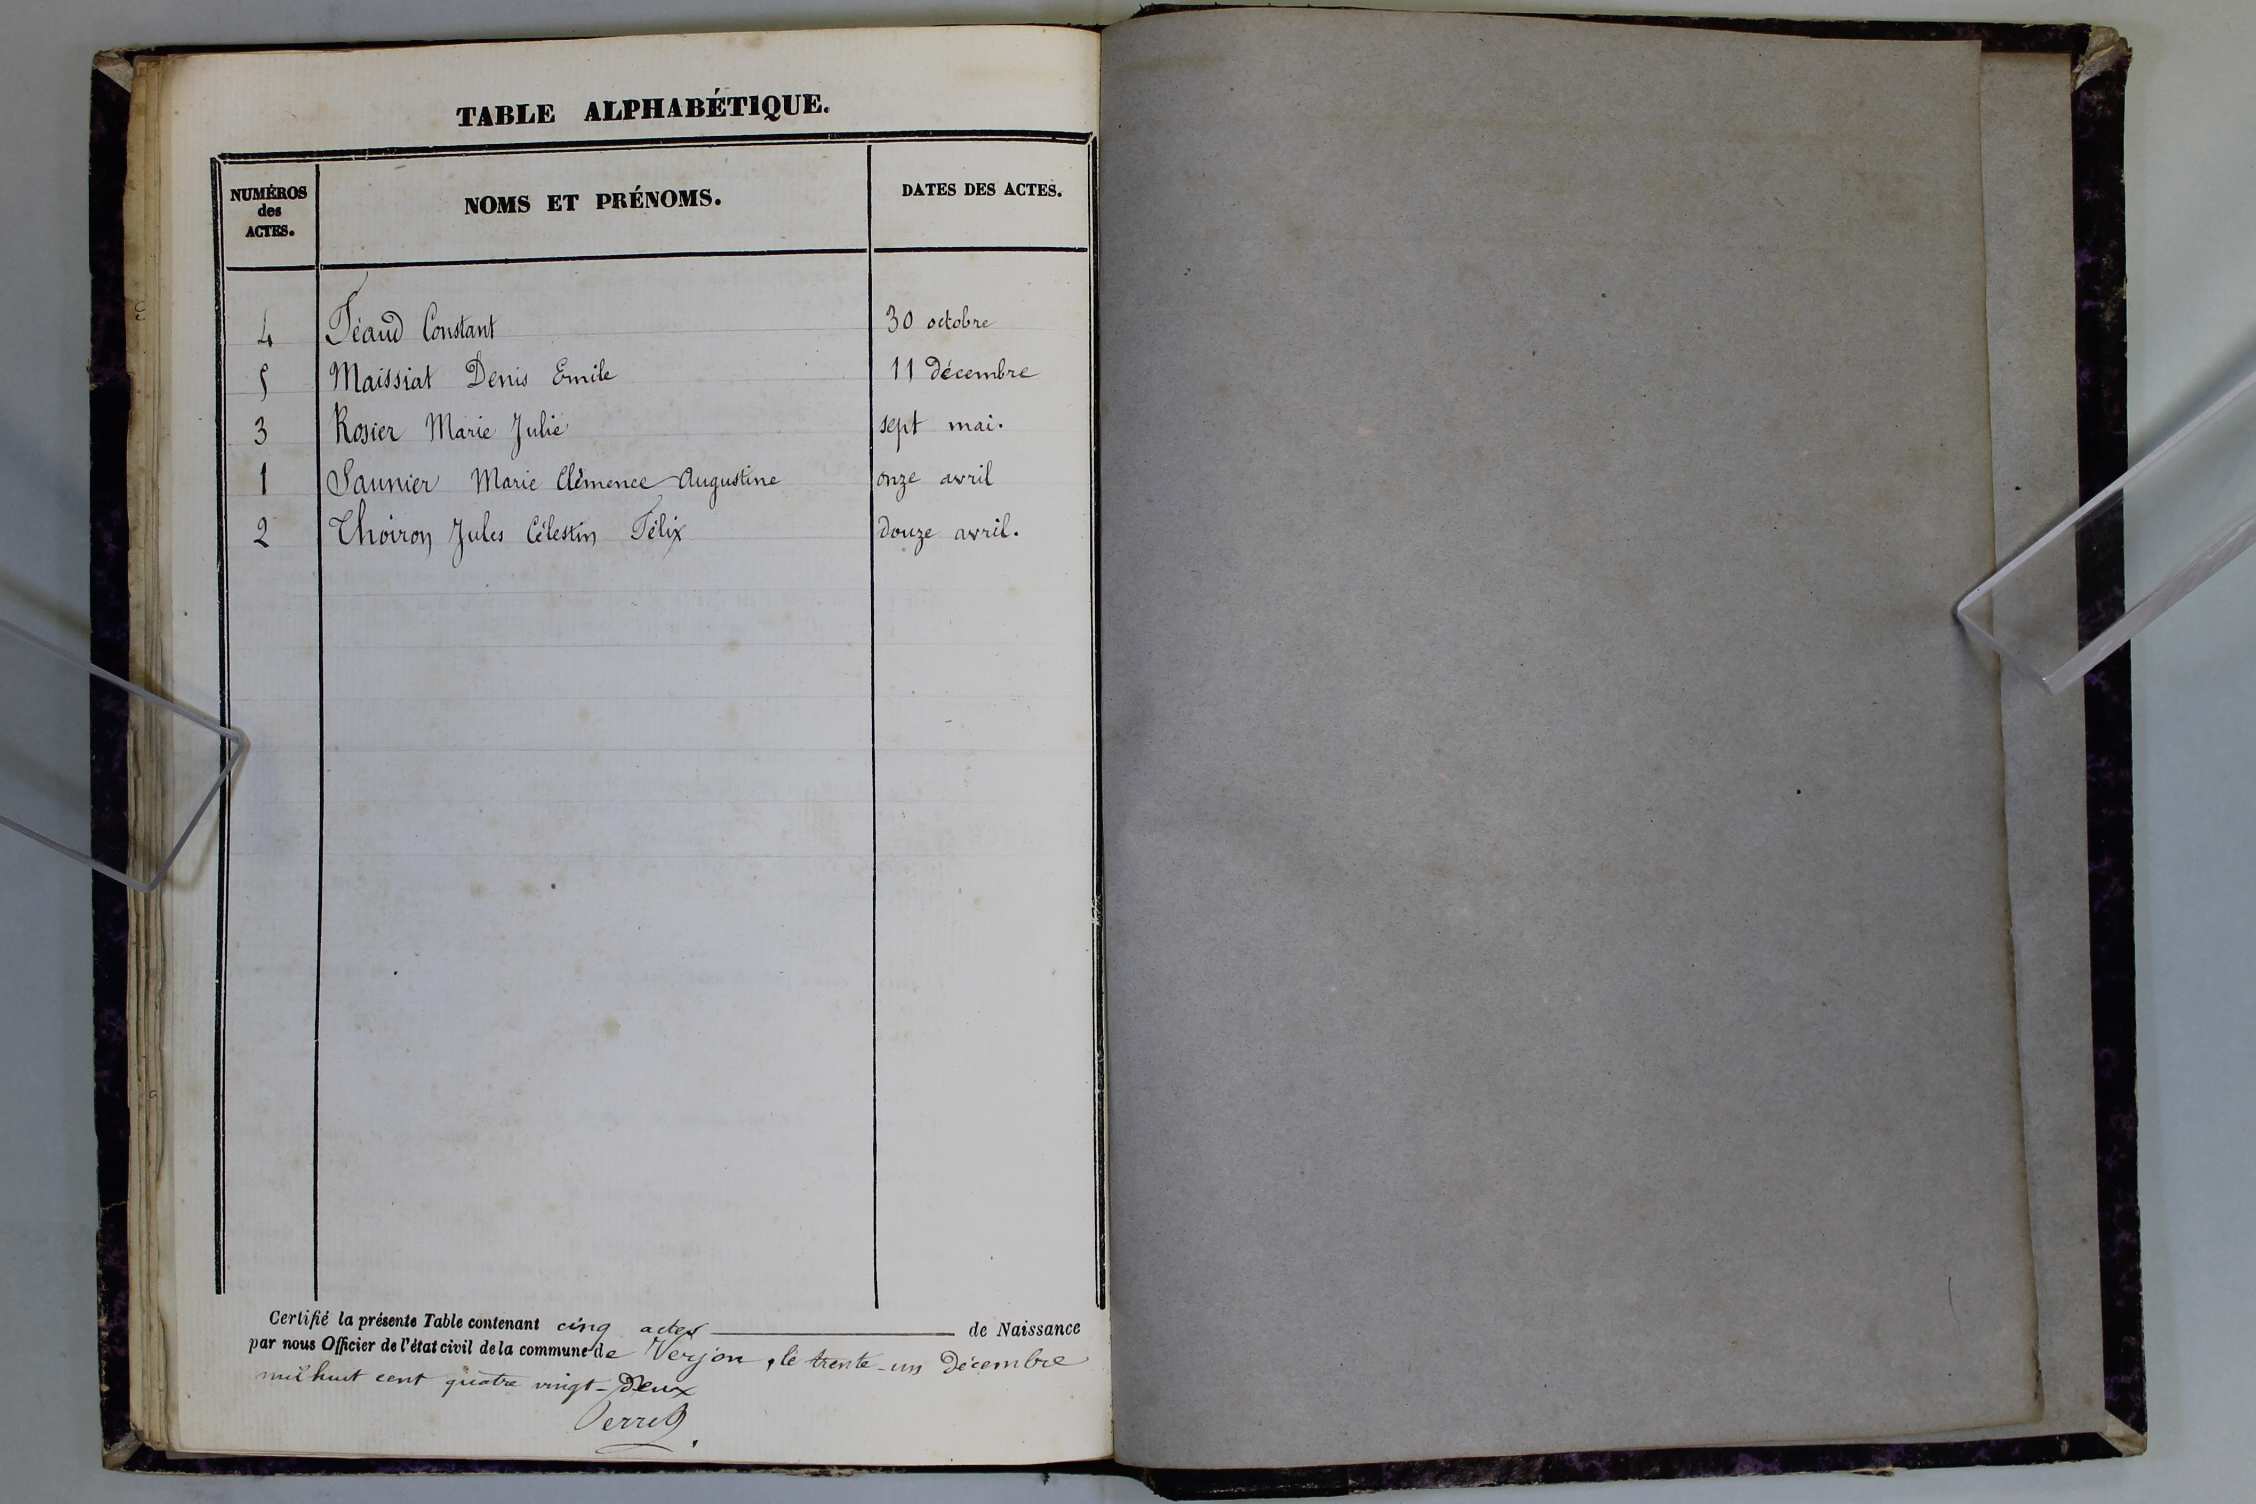 TABLE ALPHABÉTIQUE.
NUMÉROS des ACTES.
NOMS ET PRÉNOMS.
DATES DES ACTES.
4 Féaud Constant 30 octobre
5 Maissiat Denis Emile 11 décembre
3 Rosier Marie Julie sept mai.
1 Saunier Marie Clémence Augustine onze avril
2 Thoiron Jules Célestin Félix douze avril.
Certifié la présente Table contenant cinq actes de Naissance
par nous Officier de l'état civil de la commune de Verjon, le trente-un décembre
mil huit cent quatre vingt-deux